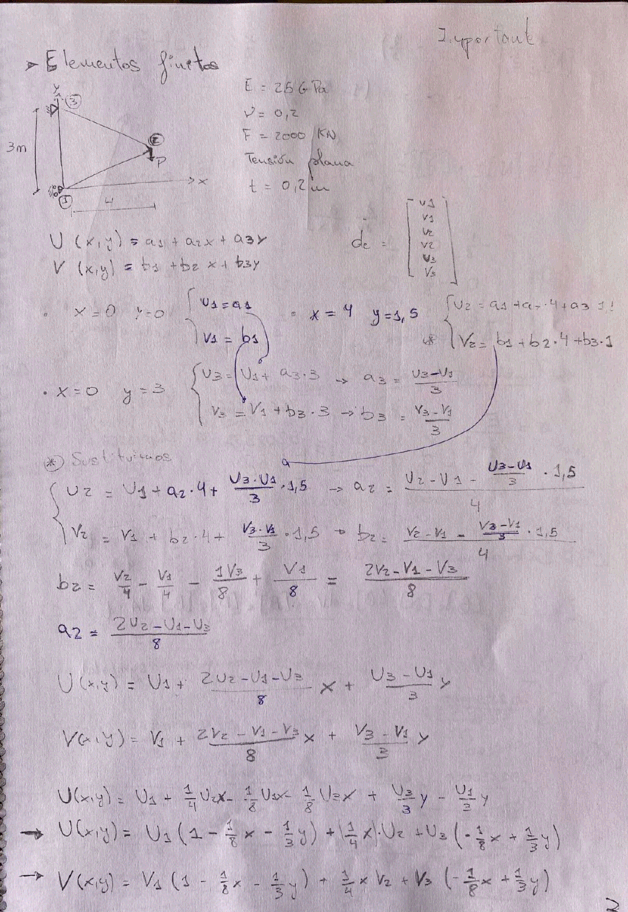 Important
> Elementos finitos
E = 25 GPa
ν = 0,2
F = 2000 KN
Tensión plana
t = 0,2 m
y
3
3m
2
P
x
1
4
U (x,y) = a1 + a2x + a3y
V (x,y) = b1 + b2 x + b3y
de = [U1 V1 U2 V2 U3 V3]
• x=0 y=0 { U1 = a1
V1 = b1
• x = 4 y = 1,5 { U2 = a1 + a2 · 4 + a3 1,
* V2 = b1 + b2 · 4 + b3 · 1
• x=0 y=3 { U3 = U1 + a3 · 3 → a3 = (U3-U1)/3
V3 = V1 + b3 · 3 → b3 = (V3-V1)/3
(*) Sustituimos
{ U2 = U1 + a2 · 4 + (U3-U1)/3 · 1,5 → a2 = (U2 - U1 - (U3-U1)/3 · 1,5)/4
V2 = V1 + b2 · 4 + (V3-V1)/3 · 1,5 → b2 = (V2 - V1 - (V3-V1)/3 · 1,5)/4
b2 = V2/4 - V1/4 - 1V3/8 + V1/8 = (2V2-V1-V3)/8
a2 = (2U2-U1-U3)/8
U(x,y) = U1 + (2U2-U1-U3)/8 x + (U3-U1)/3 y
V(x,y) = V1 + (2V2-V1-V3)/8 x + (V3-V1)/3 y
U(x,y) = U1 + 1/4 U2x - 1/8 U1x - 1/8 U3x + U3/3 y - U1/3 y
→ U(x,y) = U1 (1 - 1/8 x - 1/3 y) + (1/4 x) · U2 + U3 (-1/8 x + 1/3 y)
→ V(x,y) = V1 (1 - 1/8 x - 1/3 y) + 1/4 x V2 + V3 (-1/8 x + 1/3 y)
2